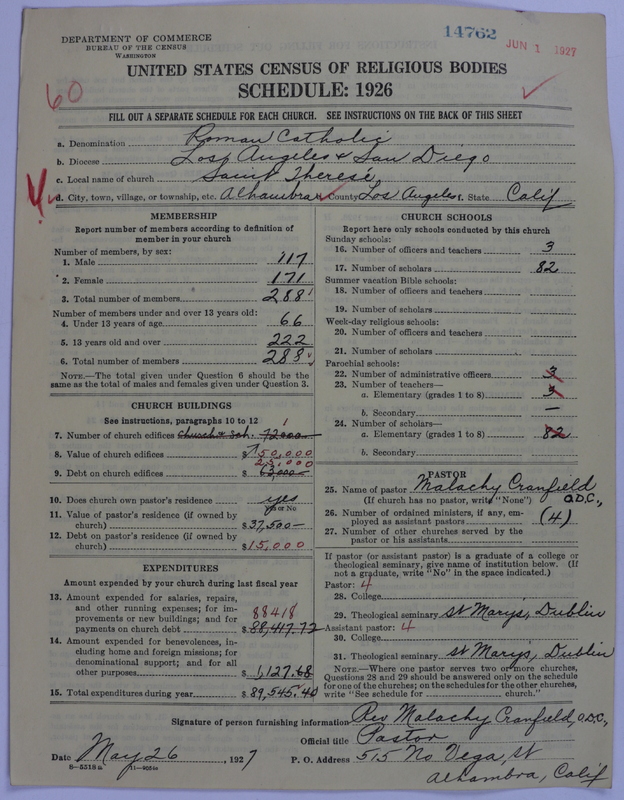 DEPARTMENT OF COMMERCE
BUREAU OF THE CENSUS
WASHINGTON
14762
JUN 1 1927
UNITED STATES CENSUS OF RELIGIOUS BODIES
SCHEDULE: 1926
60
FILL OUT A SEPARATE SCHEDULE FOR EACH CHURCH. SEE INSTRUCTIONS ON THE BACK OF THIS SHEET
a. Denomination Roman Catholic
b. Diocese Los Angeles & San Diego
c. Local name of church Saint Therese,
d. City, town, village, or township, etc. Alhambra County Los Angeles, State Calif
MEMBERSHIP
Report number of members according to definition of
member in your church
Number of members, by sex:
1. Male 117
2. Female 171
3. Total number of members 288
Number of members under and over 13 years old:
4. Under 13 years of age 66
5. 13 years old and over 222
6. Total number of members 288
NOTE.—The total given under Question 6 should be the
same as the total of males and females given under Question 3.
CHURCH BUILDINGS
See instructions, paragraphs 10 to 12
7. Number of church edifices Church & Sch. 72000 1
8. Value of church edifices $ 150,000
9. Debt on church edifices $ 63,000
10. Does church own pastor's residence yes
Yes or No
11. Value of pastor's residence (if owned by
church) $ 37,500
12. Debt on pastor's residence (if owned by
church) $ 15,000
EXPENDITURES
Amount expended by your church during last fiscal year
13. Amount expended for salaries, repairs,
and other running expenses; for im-
provements or new buildings; and for
88418
payments on church debt $ 88,417.72
14. Amount expended for benevolences, in-
cluding home and foreign missions; for
denominational support; and for all
other purposes $ 1,127.68
15. Total expenditures during year $ 89,545.40
CHURCH SCHOOLS
Report here only schools conducted by this church
Sunday schools:
16. Number of officers and teachers 3
17. Number of scholars 82
Summer vacation Bible schools:
18. Number of officers and teachers
19. Number of scholars
Week-day religious schools:
20. Number of officers and teachers
21. Number of scholars
Parochial schools:
22. Number of administrative officers 3
23. Number of teachers—
a. Elementary (grades 1 to 8)
b. Secondary —
24. Number of scholars—
a. Elementary (grades 1 to 8) 82
b. Secondary
PASTOR
25. Name of pastor Malachy Cranfield
(If church has no pastor, write "None") O.D.C.,
26. Number of ordained ministers, if any, em-
ployed as assistant pastors (4)
27. Number of other churches served by the
pastor or his assistants
If pastor (or assistant pastor) is a graduate of a college or
theological seminary, give name of institution below. (If
not a graduate, write "No" in the space indicated.)
Pastor: 4
28. College
29. Theological seminary St Marys, Dublin
Assistant pastor: 4
30. College
31. Theological seminary St Marys, Dublin
NOTE.—Where one pastor serves two or more churches,
Questions 28 and 29 should be answered only on the schedule
for one of the churches; on the schedules for the other churches,
write "See schedule for church."
Signature of person furnishing information Rev Malachy Cranfield, O.D.C.,
Official title Pastor
Date May 26, 1927 P. O. Address 515 No Vega, St
8-5518 a 11-9054a
Alhambra, Calif